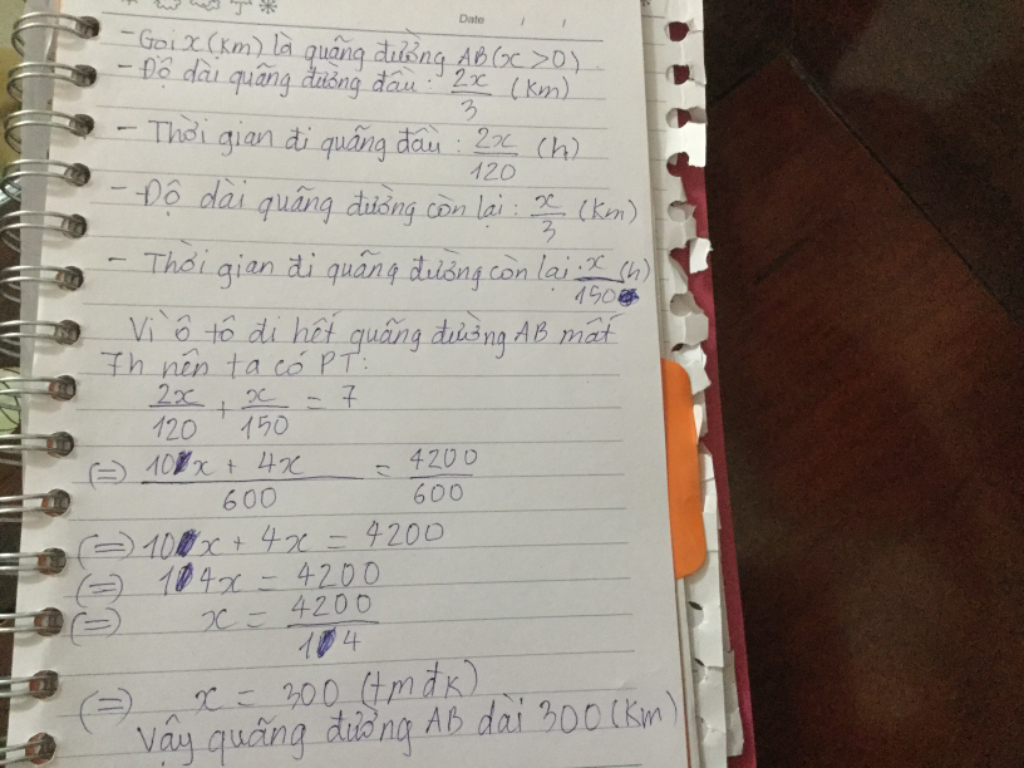 Date / /
- Gọi x (km) là quãng đường AB (x > 0)
- Độ dài quãng đường đầu : 2x/3 (km)
- Thời gian đi quãng đầu : 2x/120 (h)
- Độ dài quãng đường còn lại : x/3 (km)
- Thời gian đi quãng đường còn lại : x/150 (h)
Vì ô tô đi hết quãng đường AB mất
7h nên ta có PT:
2x/120 + x/150 = 7
(=) (10x + 4x)/600 = 4200/600
(=) 10x + 4x = 4200
(=) 14x = 4200
(=) x = 4200/14
(=) x = 300 (tmđk)
Vậy quãng đường AB dài 300 (km)